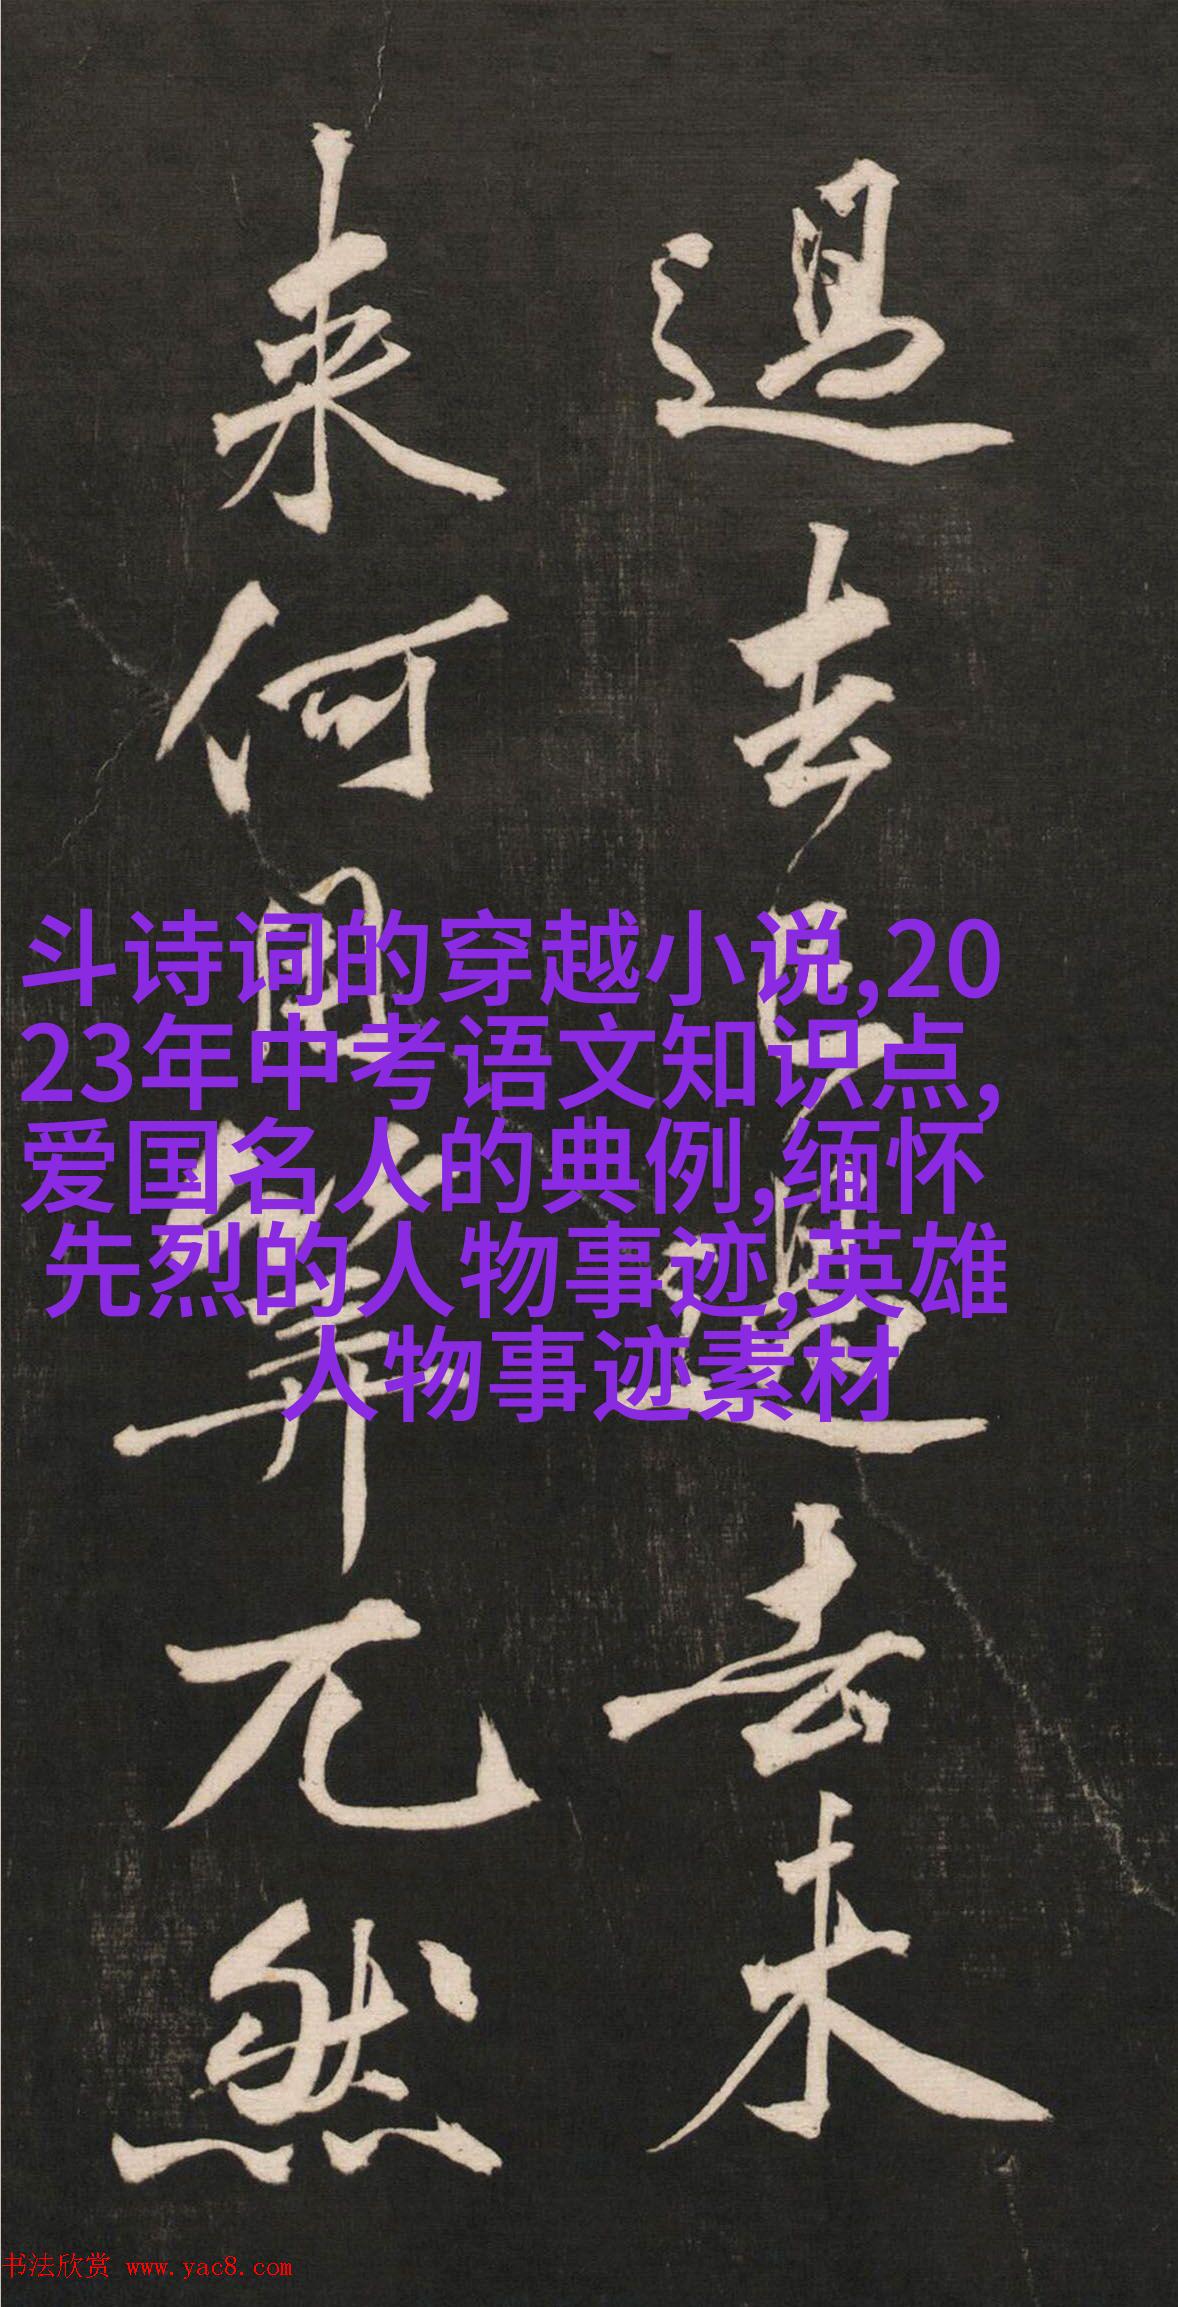 過去已過去未
来何思算兀然
斗诗词的穿越小说,20
23年中考语文知识点,
爱国名人的典例,缅怀
先烈的人物事迹,英雄
人物事迹素材
书法欣赏 www.yac8.com